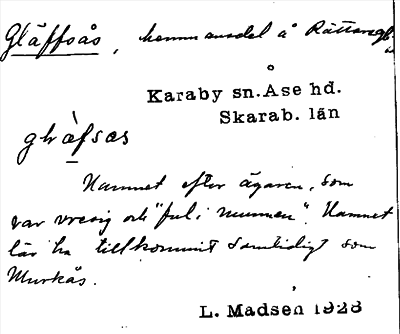 Gläffsås, hemmansdel å
Karaby sn. Åse hd.
Skarab. län
glàfsas
Namnet efter ägaren, som
var vresig och "ful i munnen". Namnet
lär ha tillkommit samtidigt som
Murkås.
L. Madsen 1928